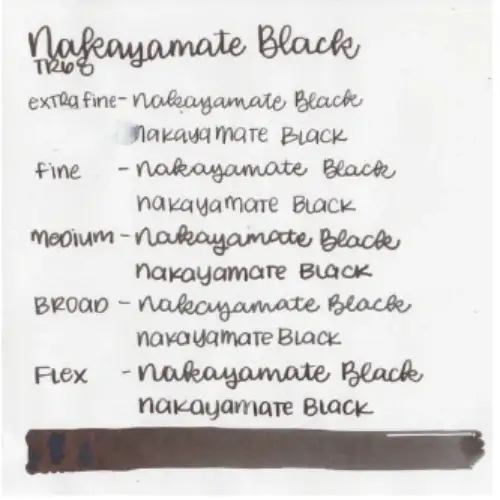 Nakayamate Black
TR68
extra fine - Nakayamate Black
nakayamate Black
fine - Nakayamate Black
nakayamate Black
medium - Nakayamate Black
nakayamate Black
Broad - Nakayamate Black
nakayamate Black
Flex - Nakayamate Black
nakayamate Black